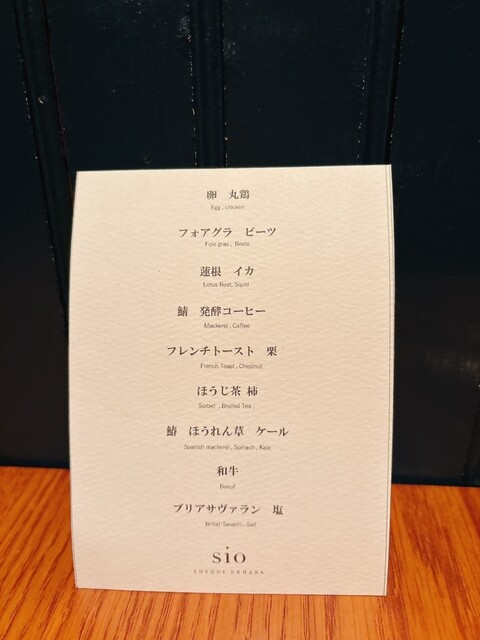 卵　丸鶏
Egg , chicken
フォアグラ　ビーツ
Foie gras , Beets
蓮根　イカ
Lotus Root, Squid
鯖　発酵コーヒー
Mackerel , Coffee
フレンチトースト　栗
French Toast , Chestnut
ほうじ茶 柿
Sorbet , Broiled Tea ,
鰆　ほうれん草　ケール
Spanish mackerel , Spinach , Kale
和牛
Boeuf
ブリアサヴァラン　塩
Brillat-Savarin , Salt
sio
YOYOGI UEHARA